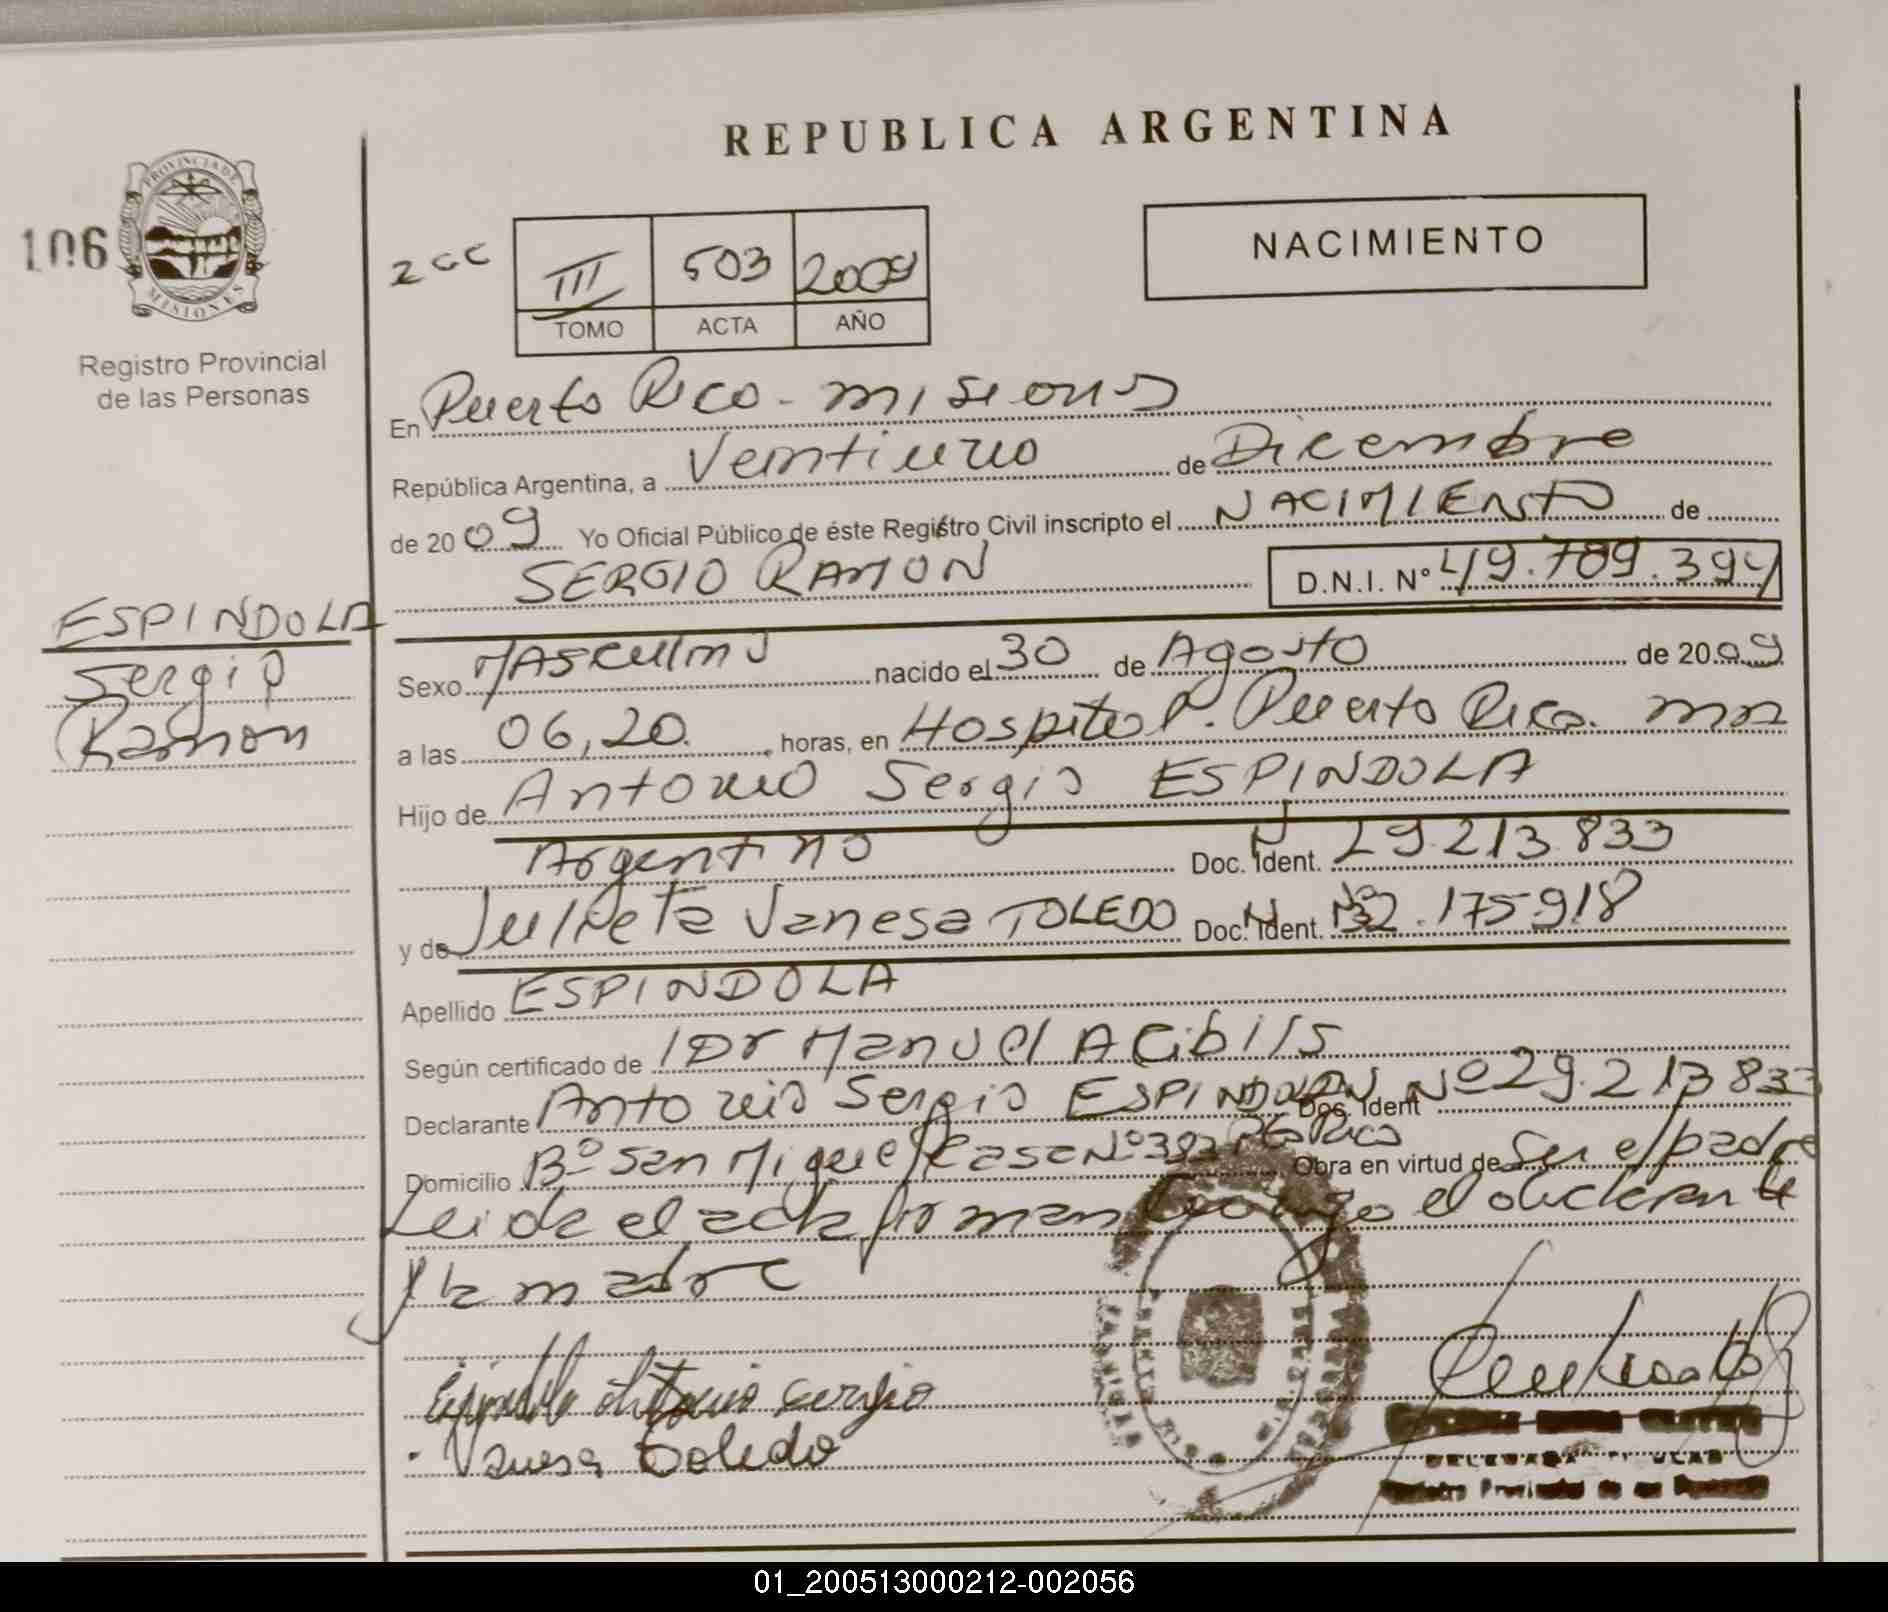 REPUBLICA ARGENTINA
PROVINCIA DE
MISIONES
106
Registro Provincial
de las Personas
NACIMIENTO
III 503 2009
TOMO ACTA AÑO
En Puerto Rico - Misiones
República Argentina, a Veintiuno de Diciembre
de 2009 Yo Oficial Público de éste Registro Civil inscripto el NACIMIENTO de
SERGIO RAMON D.N.I. N° 49.789.394
ESPINDOLA
Sergio
Ramon
Sexo Masculino nacido el 30 de Agosto de 2009
a las 06,20 horas, en Hospital P. Puerto Rico. Mns
Hijo de Antonio Sergio ESPINDOLA
Argentino Doc. Ident. 29.213.833
y de Julieta Vanesa TOLEDO Doc. Ident. Nº 32.175.918
Apellido ESPINDOLA
Según certificado de Dr Manuel A Cibils
Declarante Antonio Sergio ESPINDOLA Doc. Ident Nº 29.213.833
Domicilio Bº San Miguel Casa Nº 393 Pto Rico Obra en virtud de Ser el padre
Leida el acta firman conmigo el declarante
y la madre
Espindola Antonio sergio
Vanesa Toledo
DELEGADA TITULAR
Registro Provincial de las Personas
01_200513000212-002056